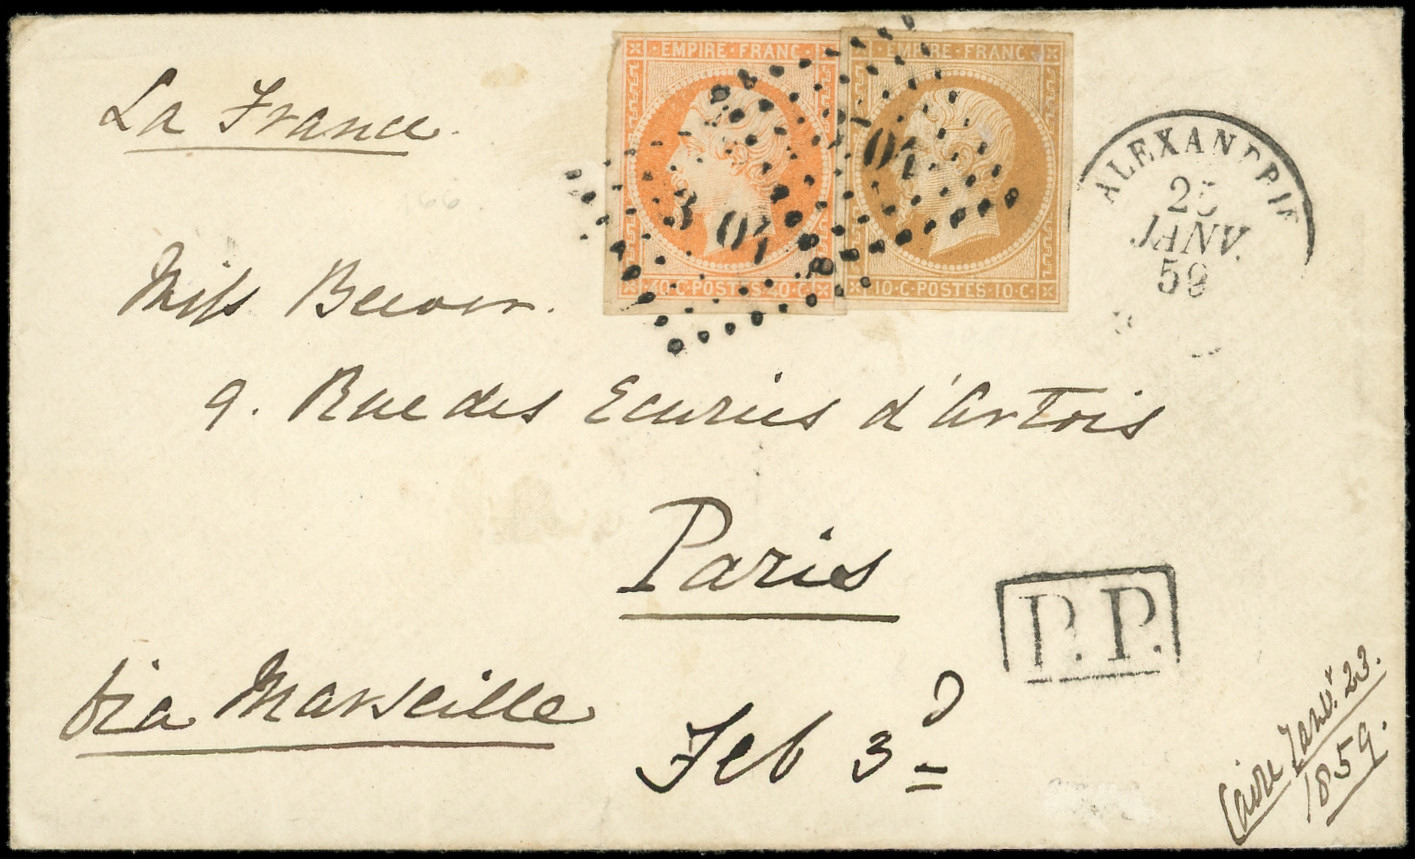 La France.
EMPIRE · FRANC ·
40 · C · POSTES · 40 · C ·
EMPIRE · FRANC ·
10 · C · POSTES · 10 · C ·
3704
ALEXANDRIE
25
JANV.
59
Miss
9. Rue des Ecuries d'Artois
Paris
P.P.
via Marseille
Feb 3d
Caire Janv. 23.
1859.